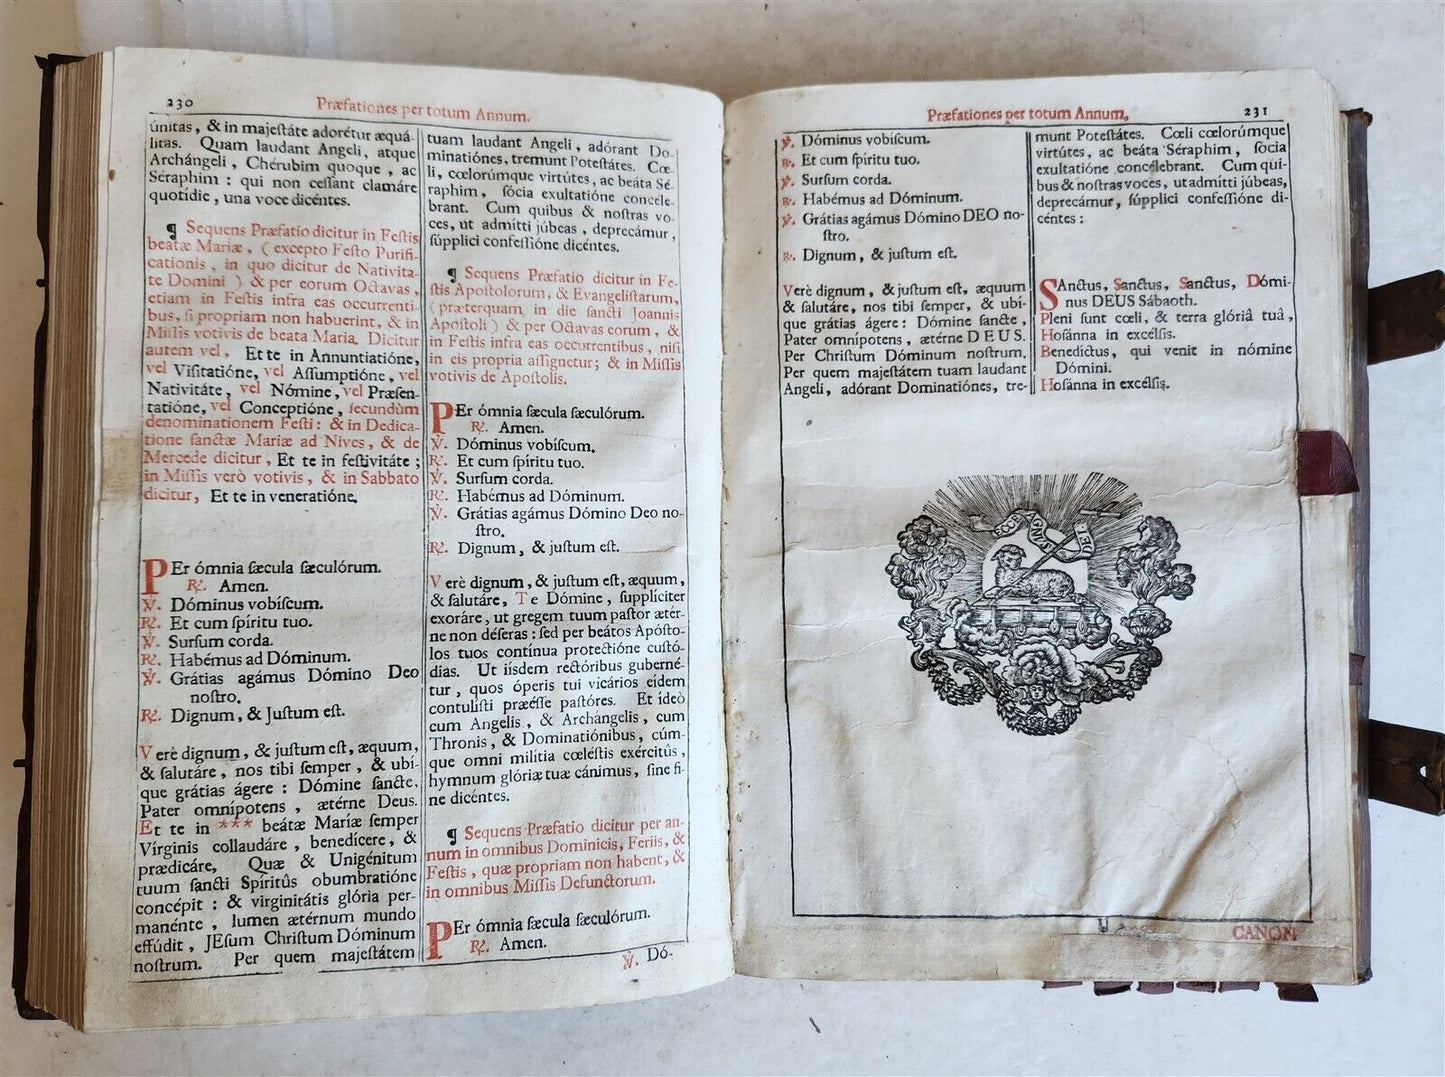 230
Præfationes per totum Annum.
únitas, & in majeſtáte adorétur æquá-
litas. Quam laudant Angeli, atque
Archángeli, Chérubim quoque, ac
Séraphim : qui non ceſſant clamáre
quotídie, una voce dicéntes.
¶ Sequens Præfatio dicitur in Feſtis
beatæ Mariæ, ( excepto Feſto Purifi-
cationis, in quo dicitur de Nativita-
te Domini ) & per eorum Octavas,
etiam in Feſtis infra eas occurrenti-
bus, ſi propriam non habuerint, & in
Miſſis votivis de beata Maria. Dicitur
autem vel, Et te in Annuntiatióne,
vel Viſitatióne, vel Aſſumptióne, vel
Nativitáte, vel Nómine, vel Præſen-
tatióne, vel Conceptióne, ſecundùm
denominationem Feſti: & in Dedica-
tione ſanctæ Mariæ ad Nives, & de
Mercede dicitur, Et te in feſtivitáte ;
in Miſſis verò votivis, & in Sabbato
dicitur, Et te in veneratióne.
PEr ómnia ſæcula ſæculórum.
℟. Amen.
℣. Dóminus vobíſcum.
℟. Et cum ſpíritu tuo.
℣. Surſum corda.
℟. Habémus ad Dóminum.
℣. Grátias agámus Dómino Deo
noſtro.
℟. Dignum, & Juſtum eſt.
Verè dignum, & juſtum eſt, æquum,
& ſalutáre, nos tibi ſemper, & ubí-
que grátias ágere : Dómine ſancte,
Pater omnípotens, ætérne Deus.
Et te in *** beátæ Maríæ ſemper
Vírginis collaudáre, benedícere, &
prædicáre, Quæ & Unigénitum
tuum ſancti Spíritûs obumbratióne
concépit : & virginitátis glória per-
manénte, lumen ætérnum mundo
effúdit, JEſum Chriſtum Dóminum
noſtrum. Per quem majeſtátem
tuam laudant Angeli, adórant Do-
minatiónes, tremunt Poteſtátes. Cœ-
li, cœlorúmque virtútes, ac beáta Sé-
raphim, ſócia exultatióne concéle-
brant. Cum quibus & noſtras vo-
ces, ut admítti júbeas, deprecámur,
ſúpplici confeſſióne dicéntes.
¶ Sequens Præfatio dicitur in Fe-
ſtis Apoſtolorum, & Evangeliſtarum,
(præterquam in die ſancti Joannis
Apoſtoli ) & per Octavas eorum, &
in Feſtis infra eas occurrentibus, niſi
in eis propria aſſignetur; & in Miſſis
votivis de Apoſtolis.
PEr ómnia ſæcula ſæculórum.
℟. Amen.
℣. Dóminus vobíſcum.
℟. Et cum ſpíritu tuo.
℣. Surſum corda.
℟. Habémus ad Dóminum.
℣. Grátias agámus Dómino Deo no-
ſtro.
℟. Dignum, & juſtum eſt.
Verè dignum, & juſtum eſt, æquum,
& ſalutáre, Te Dómine, ſupplíciter
exoráre, ut gregem tuum paſtor ætér-
ne non déſeras : ſed per beátos Apóſto-
los tuos contínua protectióne cuſtó-
dias. Ut iíſdem rectóribus guberné-
tur, quos óperis tui vicários eídem
contulíſti præéſſe paſtóres. Et ídeò
cum Angelis, & Archángelis, cum
Thronis, & Dominatiónibus, cúm-
que omni milítia cœléſtis exércitûs,
hymnum glóriæ tuæ cánimus, ſine fi-
ne dicéntes.
¶ Sequens Præfatio dicitur per an-
num in omnibus Dominicis, Feriis, &
Feſtis, quæ propriam non habent, &
in omnibus Miſſis Defunctorum.
PEr ómnia ſæcula ſæculórum.
℟. Amen.
℣. Dó-
Præfationes per totum Annum.
231
℣. Dóminus vobíſcum.
℟. Et cum ſpíritu tuo.
℣. Surſum corda.
℟. Habémus ad Dóminum.
℣. Grátias agámus Dómino DEO no-
ſtro.
℟. Dignum, & juſtum eſt.
Verè dignum, & juſtum eſt, æquum
& ſalutáre, nos tibi ſemper, & ubí-
que grátias ágere : Dómine ſancte,
Pater omnípotens, ætérne DEUS.
Per Chriſtum Dóminum noſtrum.
Per quem majeſtátem tuam laudant
Angeli, adórant Dominatiónes, tre-
munt Poteſtátes. Cœli cœlorúmque
virtútes, ac beáta Séraphim, ſócia
exultatióne concélebrant. Cum qui-
bus & noſtras voces, ut admítti júbeas,
deprecámur, ſúpplici confeſſióne di-
céntes :
SAnctus, Sanctus, Sanctus, Dómi-
nus DEUS Sábaoth.
Pleni ſunt cœli, & terra glóriâ tuâ,
Hoſánna in excélſis.
Benedíctus, qui venit in nómine
Dómini.
Hoſánna in excélſis.
ECCE AGNUS DEI
CANON